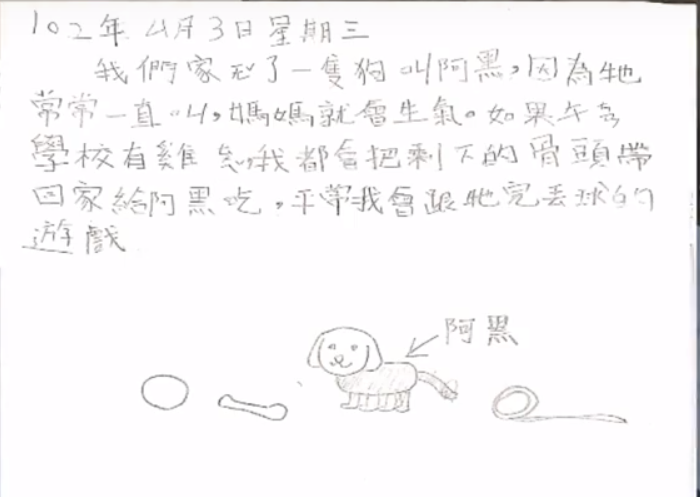 102年4月3日星期三
我們家了一隻狗叫阿黑,因為牠
常常一直叫,媽媽就會生氣。如果午
學校有雞,我都會把剩下的骨頭帶
回家給阿黑吃,平帶我會跟牠完丟球的
遊戲
阿黑